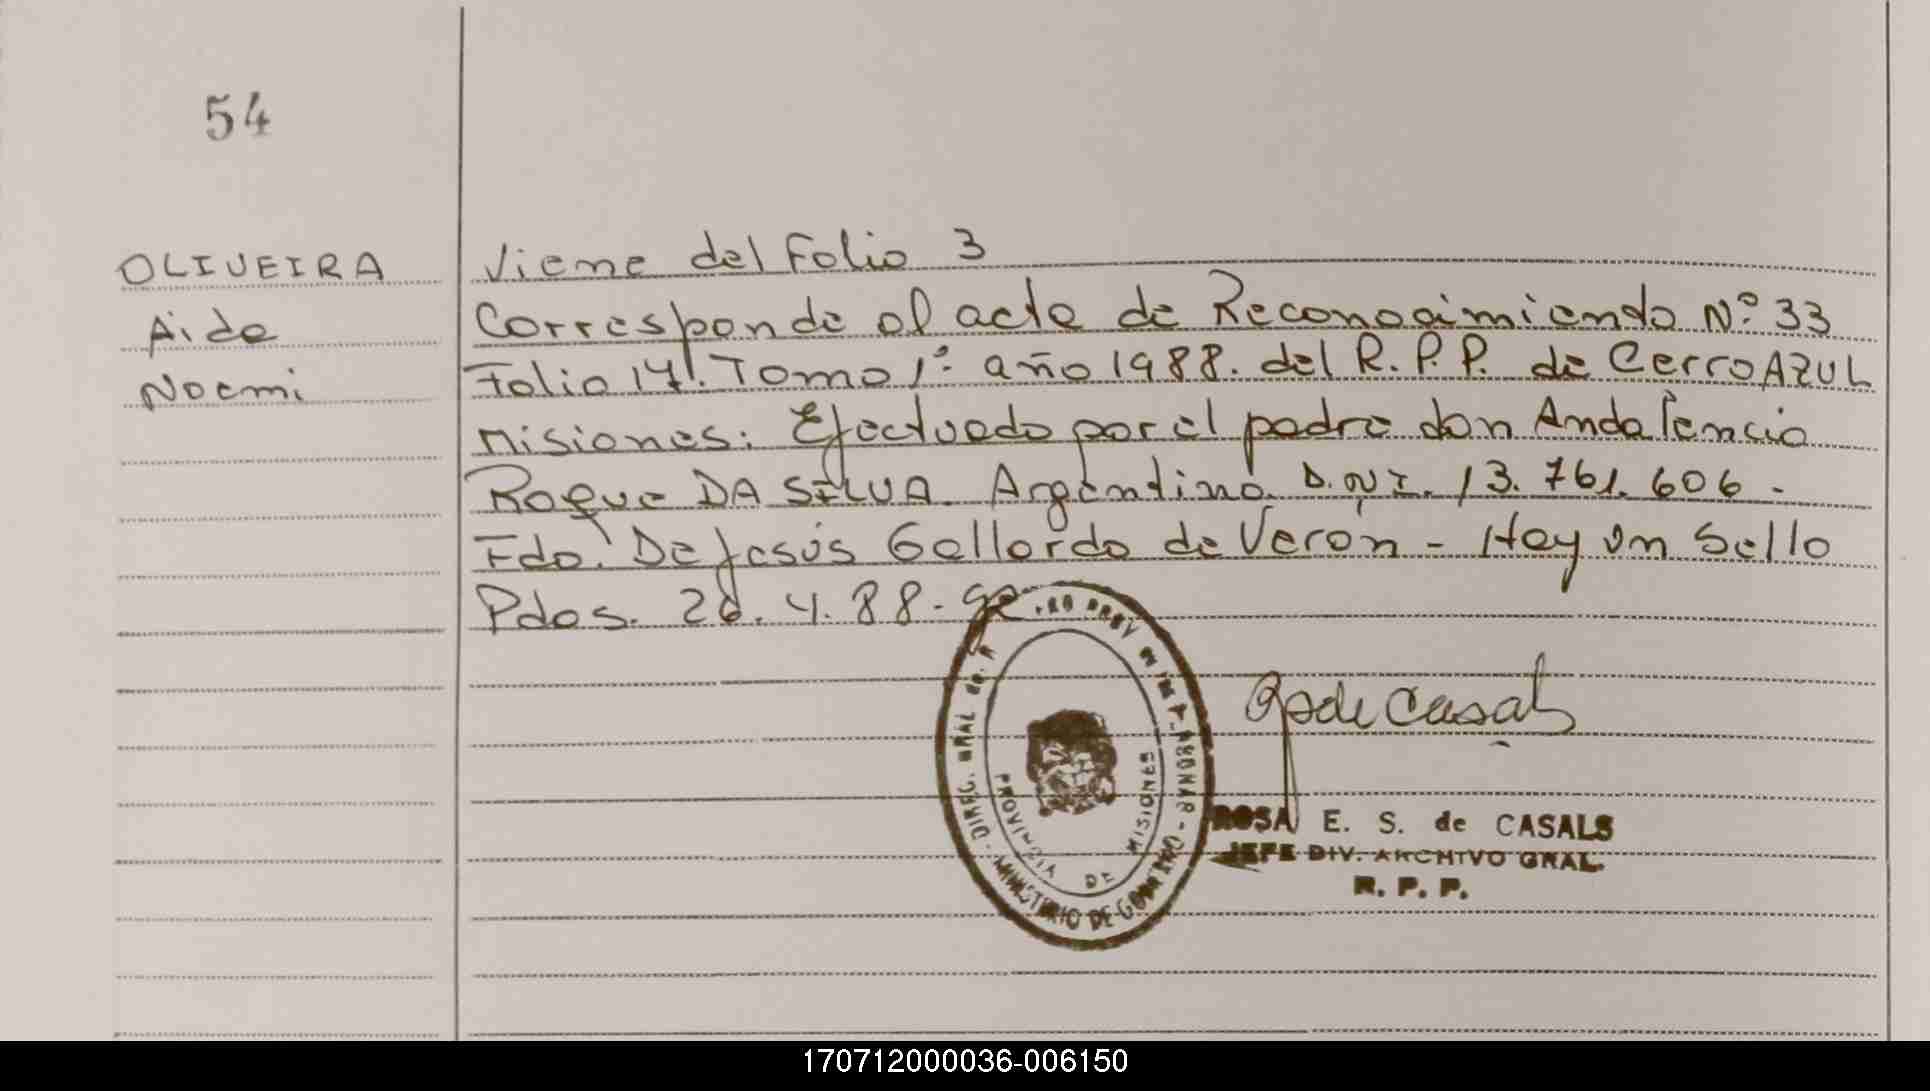 54
OLIVEIRA
Aide
Noemi
Viene del Folio 3
Corresponde al acta de Reconocimiento Nº 33
Folio 17. Tomo 1º año 1988. del R.P.P. de Cerro AZUL
Misiones: Efectuado por el padre don Andalencio
Roque DA SILVA. Argentino. D.N.I. 13.761.606.-
Fdo. De Jesús Gallardo de Verón - Hay un Sello
Pdas. 26.4.88.-
DIREC. GRAL
MINISTERIO DE GOBIERNO
PROVINCIA DE MISIONES
de Casals
ROSA E. S. de CASALS
JEFE DIV. ARCHIVO GRAL.
R. P. P.
170712000036-006150